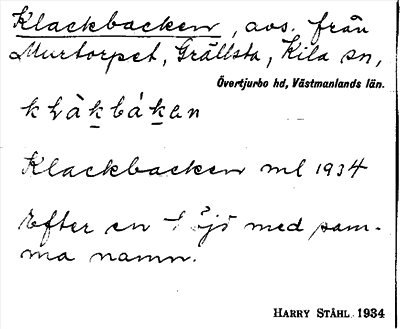 Klackbacken, avs. från
Murtorpet, Grällsta, Kila sn,
Övertjurbo hd, Västmanlands län.
Klackbacken ml 1934
Efter en höjd med sam-
ma namn.
HARRY STÅHL 1934